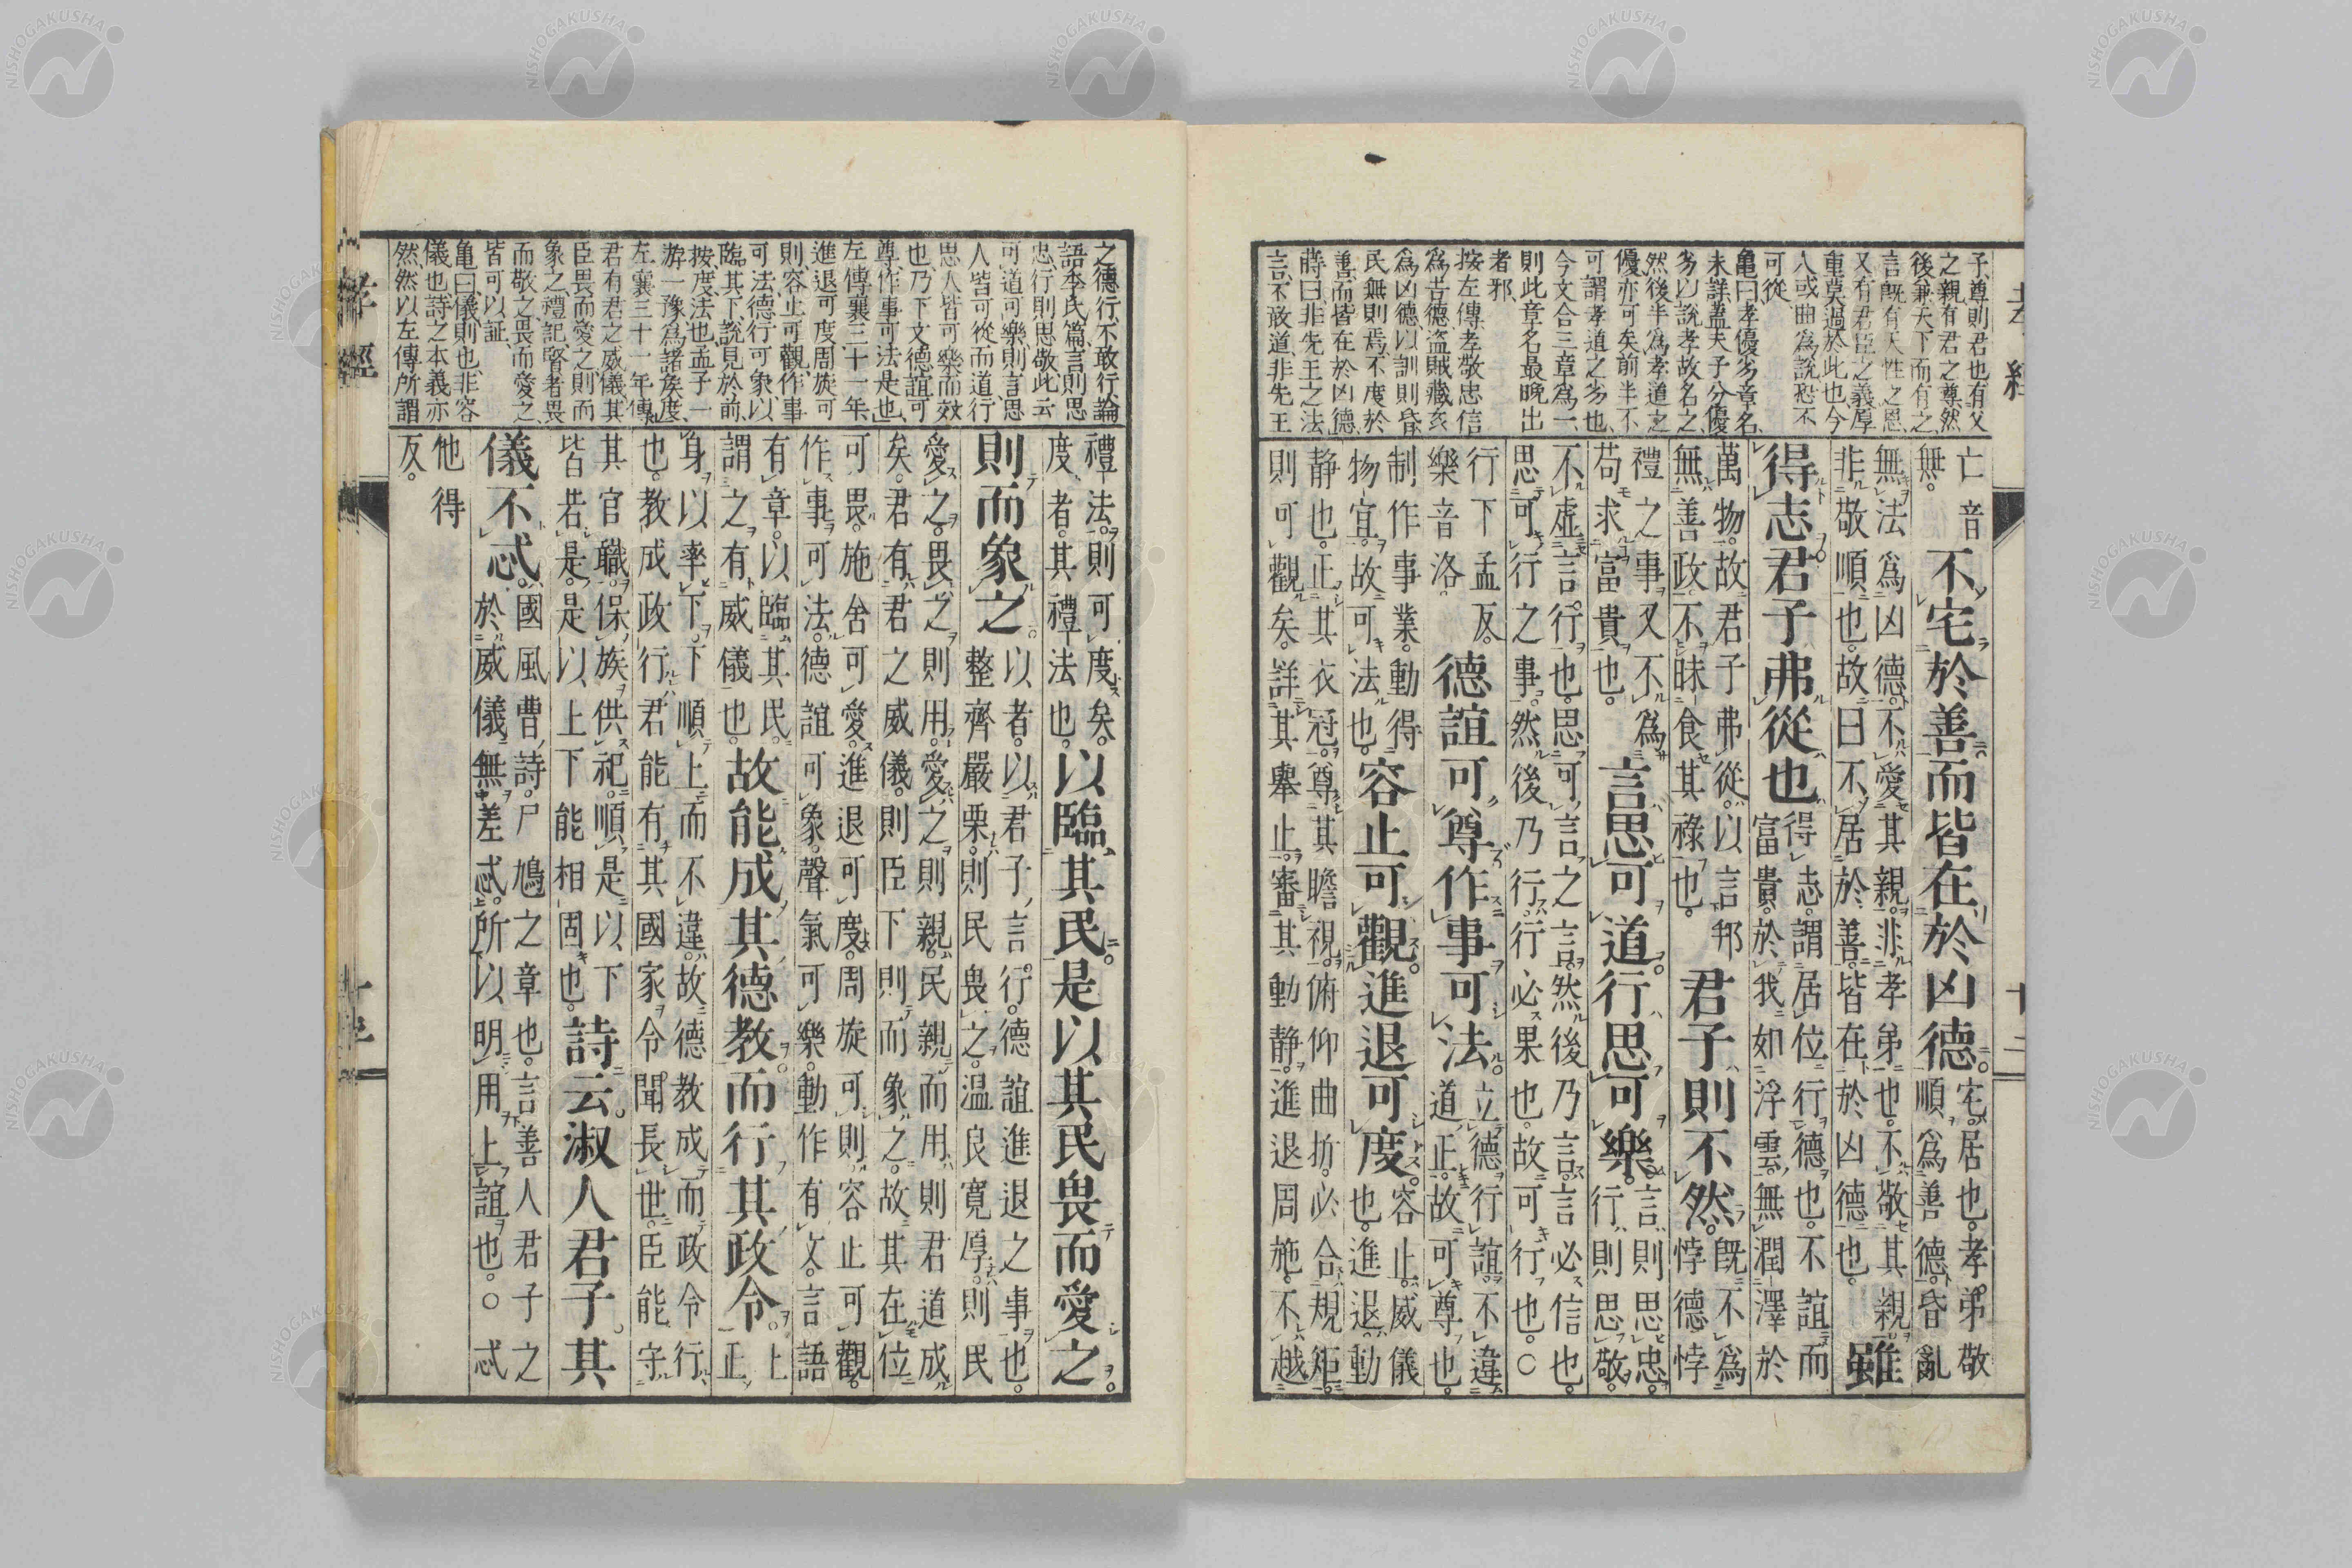 子、尊則君也、有父
之親、有君之尊、然
後兼天下而有之、
言既有天性之恩、
又有君臣之義、厚
重莫過於此也、今
人或曲為說、恐不
可從、
龜曰、孝優劣章名、
未詳、蓋夫子分優
劣以說孝、故名之、
然後半為孝道之
優、亦可矣、前半不
可謂孝道之劣也、
今文合三章為一、
則此章名最晚出
者邪、
按左傳、孝敬忠信
為吉德、盜賊藏姦
為凶德、以訓則昏、
民無則焉、不度於
善、而皆在於凶德、
蒋曰、非先王之法
言、不敢道、非先王
亡音
無。
不宅於善。而皆在於凶德。
宅居也。孝弟敬
順為善德。昏亂
無法為凶德。不愛其親。非孝弟也。不敬其親
非敬順也。故曰不居於善。皆在於凶德也。
雖
得志。君子弗從也
得志謂居位行德也。不誼而
富貴於我如浮雲。無潤澤於
萬物。故君子弗從。以言邦
無善政。不昧食其祿也。
君子則不然。
既不為
悖德悖
禮之事又不為
苟求富貴也。
言思可道。行思可樂。
言則思忠。
行則思敬。
不虛言。行也。思可言之言。然後乃言。言必信也。
思可行之事。然後乃行。行必果也。故可行也。○
行下孟反。
樂音洛。
德誼可尊。作事可法。
立德行誼。不違
道正。故可尊也。
制作事業。動得
物宜。故可法也。
容止可觀。進退可度。
容止。威儀
也。進退。動
静也。正其衣冠。尊其瞻視。俯仰曲折。必合規矩。
則可觀矣。詳其舉止。審其動静。進退周旋。不越
之德行、不敢行、論
語季氏篇、言則思
忠、行則思敬、此云
可道可樂、則言思
人皆可從而道、行
思人皆可樂而效
也、乃下文、德誼可
尊、作事可法是也、
左傳襄三十一年、
進退可度、周旋可
則、容止可觀、作事
可法、德行可象、以
臨其下、說見於前、
按、度、法也、孟子一
游一豫為諸侯度、
左襄三十一年傳、
君有君之威儀、其
臣畏而愛之、則而
象之、禮記、賢者畏
而敬之、畏而愛之、
皆可以証、
龜曰、儀、則也、非容
儀也、詩之本義亦
然、然以左傳所謂
禮法。則可度矣。
度者。其禮法也。
以臨其民。是以其民畏而愛之。
則而象之。
以者。以君子。言行。德誼進退之事也。
整齊嚴栗。則民畏之。温良寬厚。則民
愛之。畏之則用。愛之則親。民親而用。則君道成
矣。君有君之威儀。則臣下則而象之。故其在位
可畏。施舍可愛。進退可度。周旋可則。容止可觀。
作事可法。德誼可象。聲氣可樂。動作有文。言語
有章。以臨其民。
謂之有威儀也。
故能成其德教。而行其政令。
上
正
身以率下。下順上而不違。故德教成而政令行
也。教成政行。君能有其國家。令聞長世。臣能守
其官職。保族供祀。順是以下
皆若是。是以上下能相固也。
詩云。淑人君子。其
儀不忒。
國風曹詩。尸鳩之章也。言善人君子之
於威儀無差忒。所以明用上誼也。○忒
他得
反。
孝經